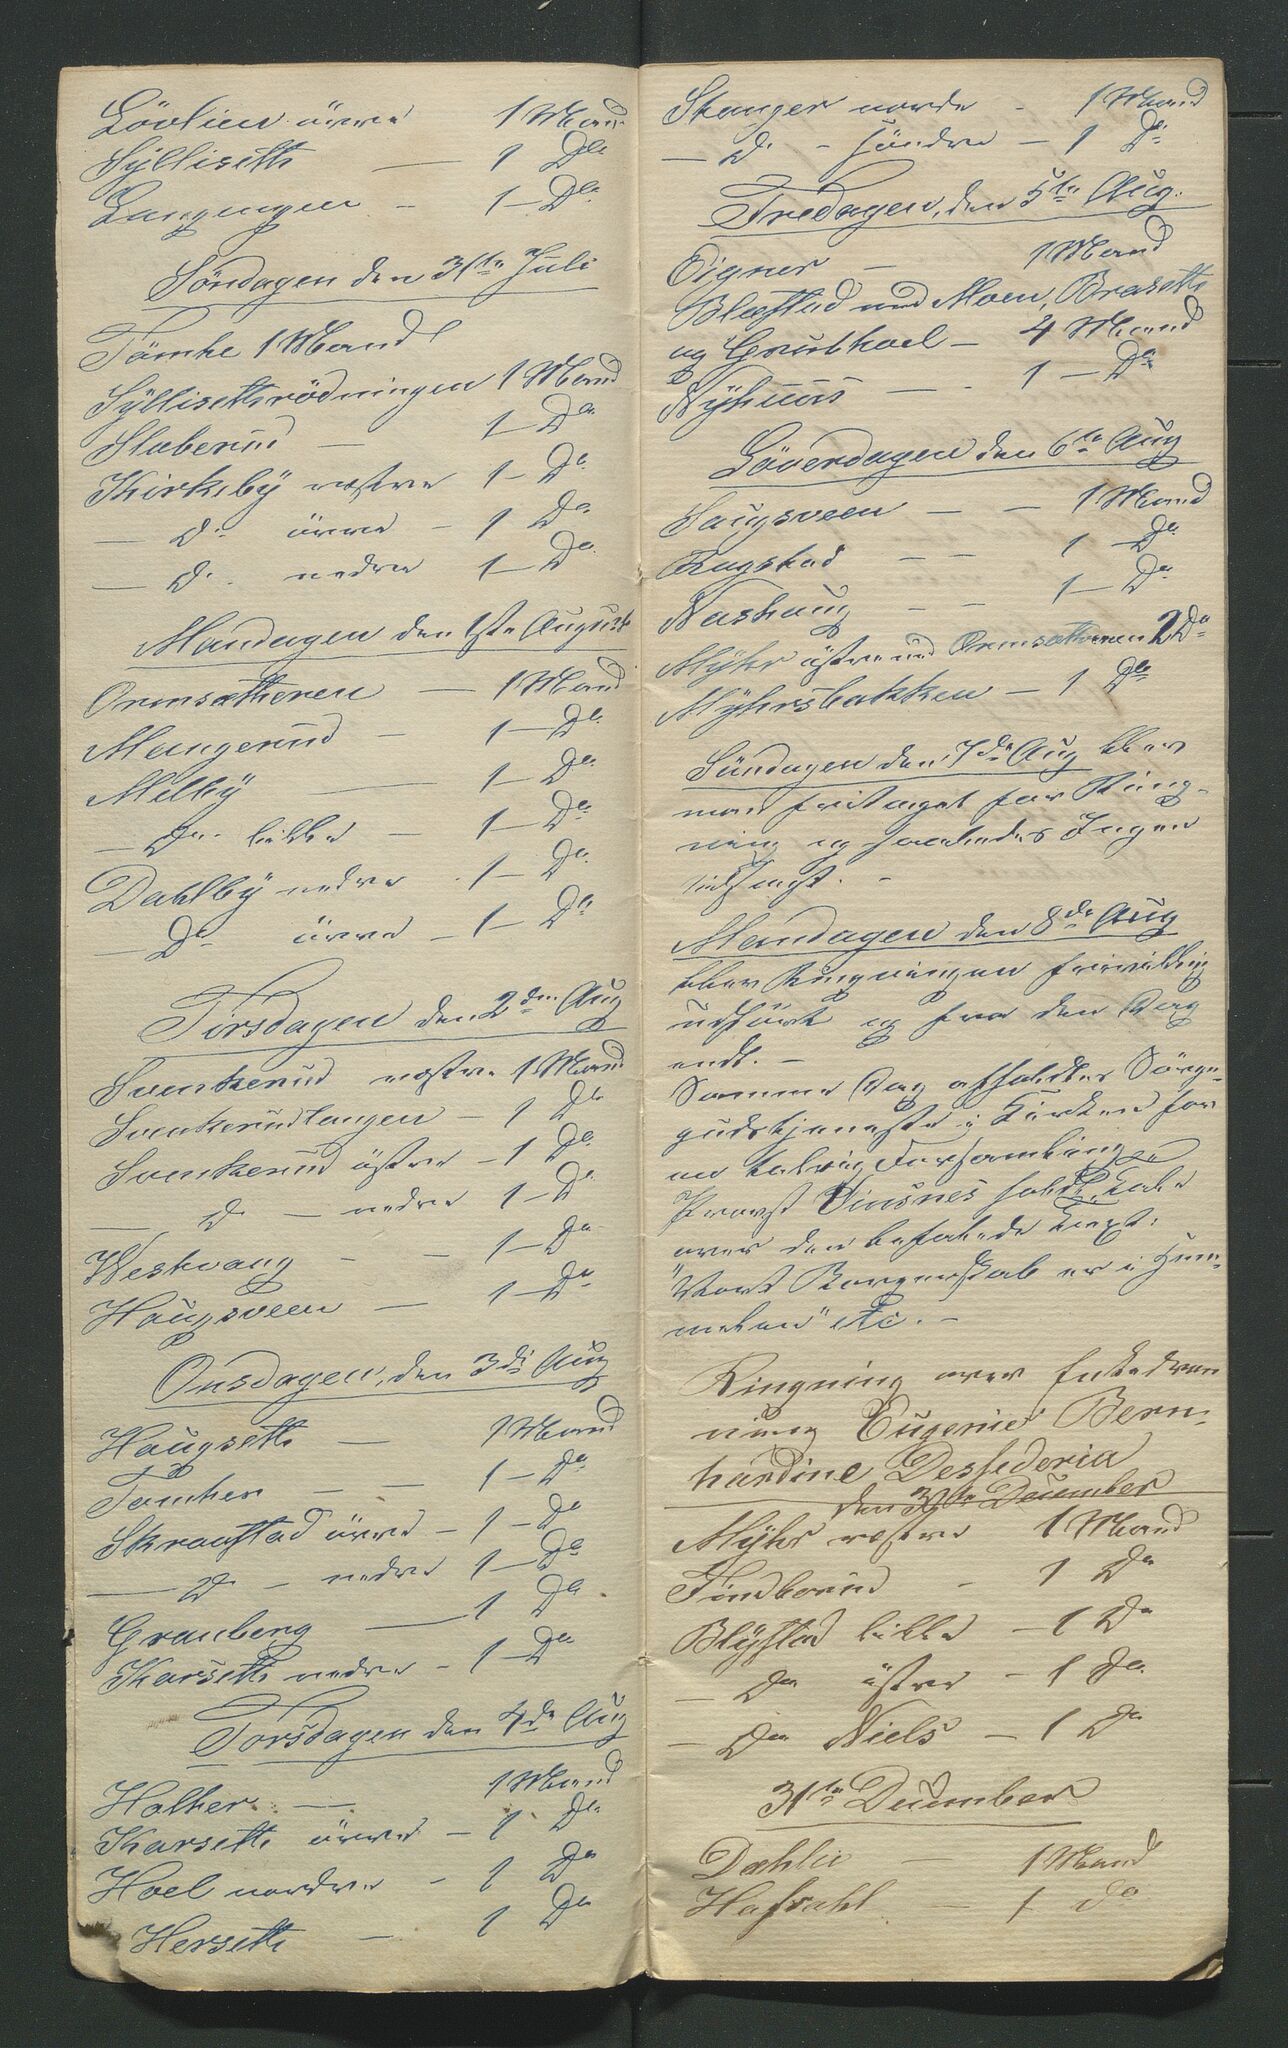 Lövlien övre 1 Mand
Sylliseth — 1 Do
Langengen - 1 - Do
Söndagen den 31te Juli
Tömte 1 Mand
Syllisethrödningen 1 Mand
Slaberud — 1 - Do
Kirkeby vestre 1 - Do
— Do övre - 1 Do
— Do nedre 1 - Do
Mandagen den 1ste August
Ormsætheren — 1 Mand
Mangerud - 1 - Do
Melby — 1 - Do
— Do lille - 1 - Do
Dahlby nedre - 1 - Do
— Do övre - 1 - Do
Tirsdagen den 2den Aug
Svenkerud vestre 1 Mand
Svenkerudlangen - 1 Do
Svenkerud östre - 1 Do
— Do — nedre 1 - Do
Westvang - - 1 - Do
Haugsveen — 1 - Do
Onsdagen, den 3di Aug
Haugseth — 1 Mand
Tomter - - 1 - Do
Skraastad övre - 1 - Do
— Do - nedre 1 - Do
Granberg — 1 Do
Karseth nedre - 1 - Do
Torsdagen den 4de Aug
Holter — 1 Mand
Karseth övre - 1 Do
Hoel nordre - 1 Do
Herseth — 1 Do
Stanger nordre - 1 Mand
— Do - söndre - 1 Do
Fredagen, den 5te Aug.
Eigner — 1 Mand
Blæstad med Moen, Braseth
og Grubhoel - 4 Mand
Nÿhuus — - 1 - Do
Löverdagen den 6te Aug
Haugsveen — — 1 Mand
Rugstad — — 1 - Do
Nashaug — — 1 - Do
Mÿhr östre med Ormsætheren 2 Do
Mÿhrsbakken - 1 Do
Söndagen den 7de Aug blev
man fritaget for Ring-
ning og saaledes Ingen
tilsagt. -
Mandagen den 8de Aug
blev Ringningen frivillig
udfört og fra den Dag
endt. -
Samme Dag afholdtes Sörge-
gudstjeneste i Kirken for
en talrig Forsamling
Provst Dinsnes holdt Tale
over den befalede Text:
"Vort Borgerskab er i Him-
melen" etc. -
Ringning over Enkedron
ning Eugenie Bern-
hardine Dessederia
den 30te December
Mÿhr vestre 1 Mand
Finborud - 1 Do
Blÿstad lille - 1 Do
— Do östre - 1 Do
— Do Niels - 1 Do
31te December
Dæhlie — 1 Mand
Hafsahl — 1 do